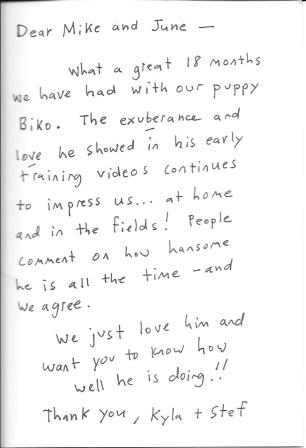 Dear Mike and June —
What a great 18 months
we have had with our puppy
Biko. The exuberance and
love he showed in his early
training videos continues
to impress us... at home
and in the fields! People
comment on how hansome
he is all the time - and
we agree.
We just love him and
want you to know how
well he is doing!!
Thank you, Kyla + Stef